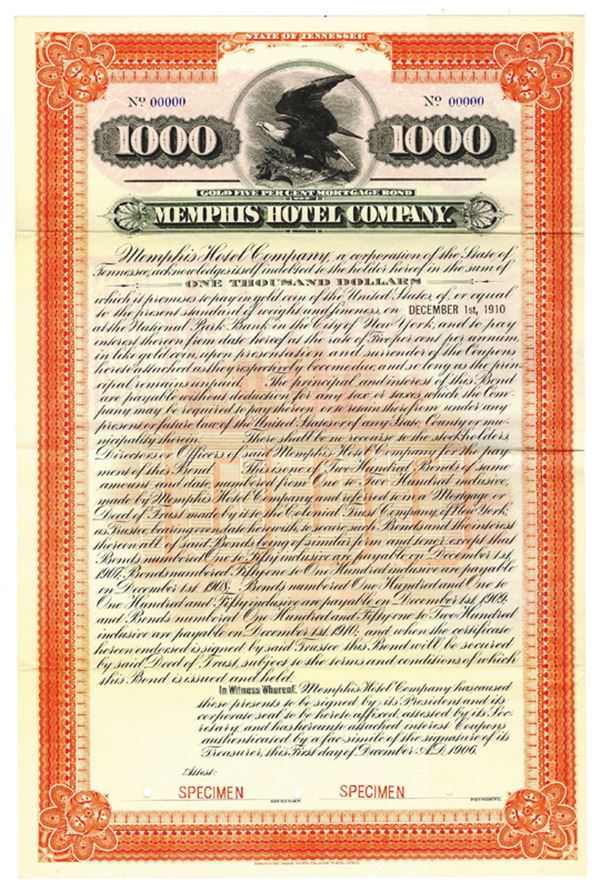 STATE OF TENNESSEE
No 00000
No 00000
1000
1000
GOLD FIVE PER CENT MORTGAGE BOND
OF
MEMPHIS HOTEL COMPANY.
Memphis Hotel Company, a corporation of the State of
Tennessee, acknowledges itself indebted to the holder hereof in the sum of
ONE THOUSAND DOLLARS
which it promises to pay in gold coin of the United States, of, or equal
to the present standard of weight and fineness, on DECEMBER 1st, 1910
at the National Park Bank in the City of New York, and to pay
interest thereon from date hereof at the rate of five per cent per annum,
in like gold coin, upon presentation and surrender of the Coupons
hereto attached as they respectively become due, and so long as the prin-
cipal remains unpaid. The principal and interest of this Bond
are payable without deduction for any tax or taxes which the Com-
pany may be required to pay thereon, or to retain therefrom under any
present or future law of the United States or of any State County or mu-
nicipality therein. There shall be no recourse to the stockholders
Directors or Officers of said Memphis Hotel Company for the pay
ment of this Bond. This is one of Two Hundred Bonds of same
amount and date, numbered from One to Two Hundred inclusive,
made by Memphis Hotel Company and referred to in a Mortgage or
Deed of Trust, made by it to the Colonial Trust Company, of New York
as Trustee, bearing even date herewith, to secure such Bonds and the interest
thereon all of said Bonds being of similar form and tenor, except that
Bonds numbered One to Fifty inclusive are payable on December 1st,
1907; Bonds numbered Fifty one to One Hundred inclusive are payable
on December 1st 1908; Bonds numbered One Hundred and One to
One Hundred and Fifty inclusive are payable on December 1st, 1909;
and Bonds numbered One Hundred and Fifty one to Two Hundred
inclusive are payable on December 1st 1910; and when the certificate
hereon endorsed is signed by said Trustee this Bond will be secured
by said Deed of Trust, subject to the terms and conditions of which
this Bond is issued and held.
In Witness Whereof, Memphis Hotel Company has caused
these presents to be signed by its President and its
corporate seal to be hereto affixed, attested by its Sec-
retary, and has hereunto attached interest Coupons
authenticated by a fac-simile of the signature of its
Treasurer, this First day of December A.D. 1906.
Attest:
SPECIMEN SPECIMEN
SECRETARY. PRESIDENT.